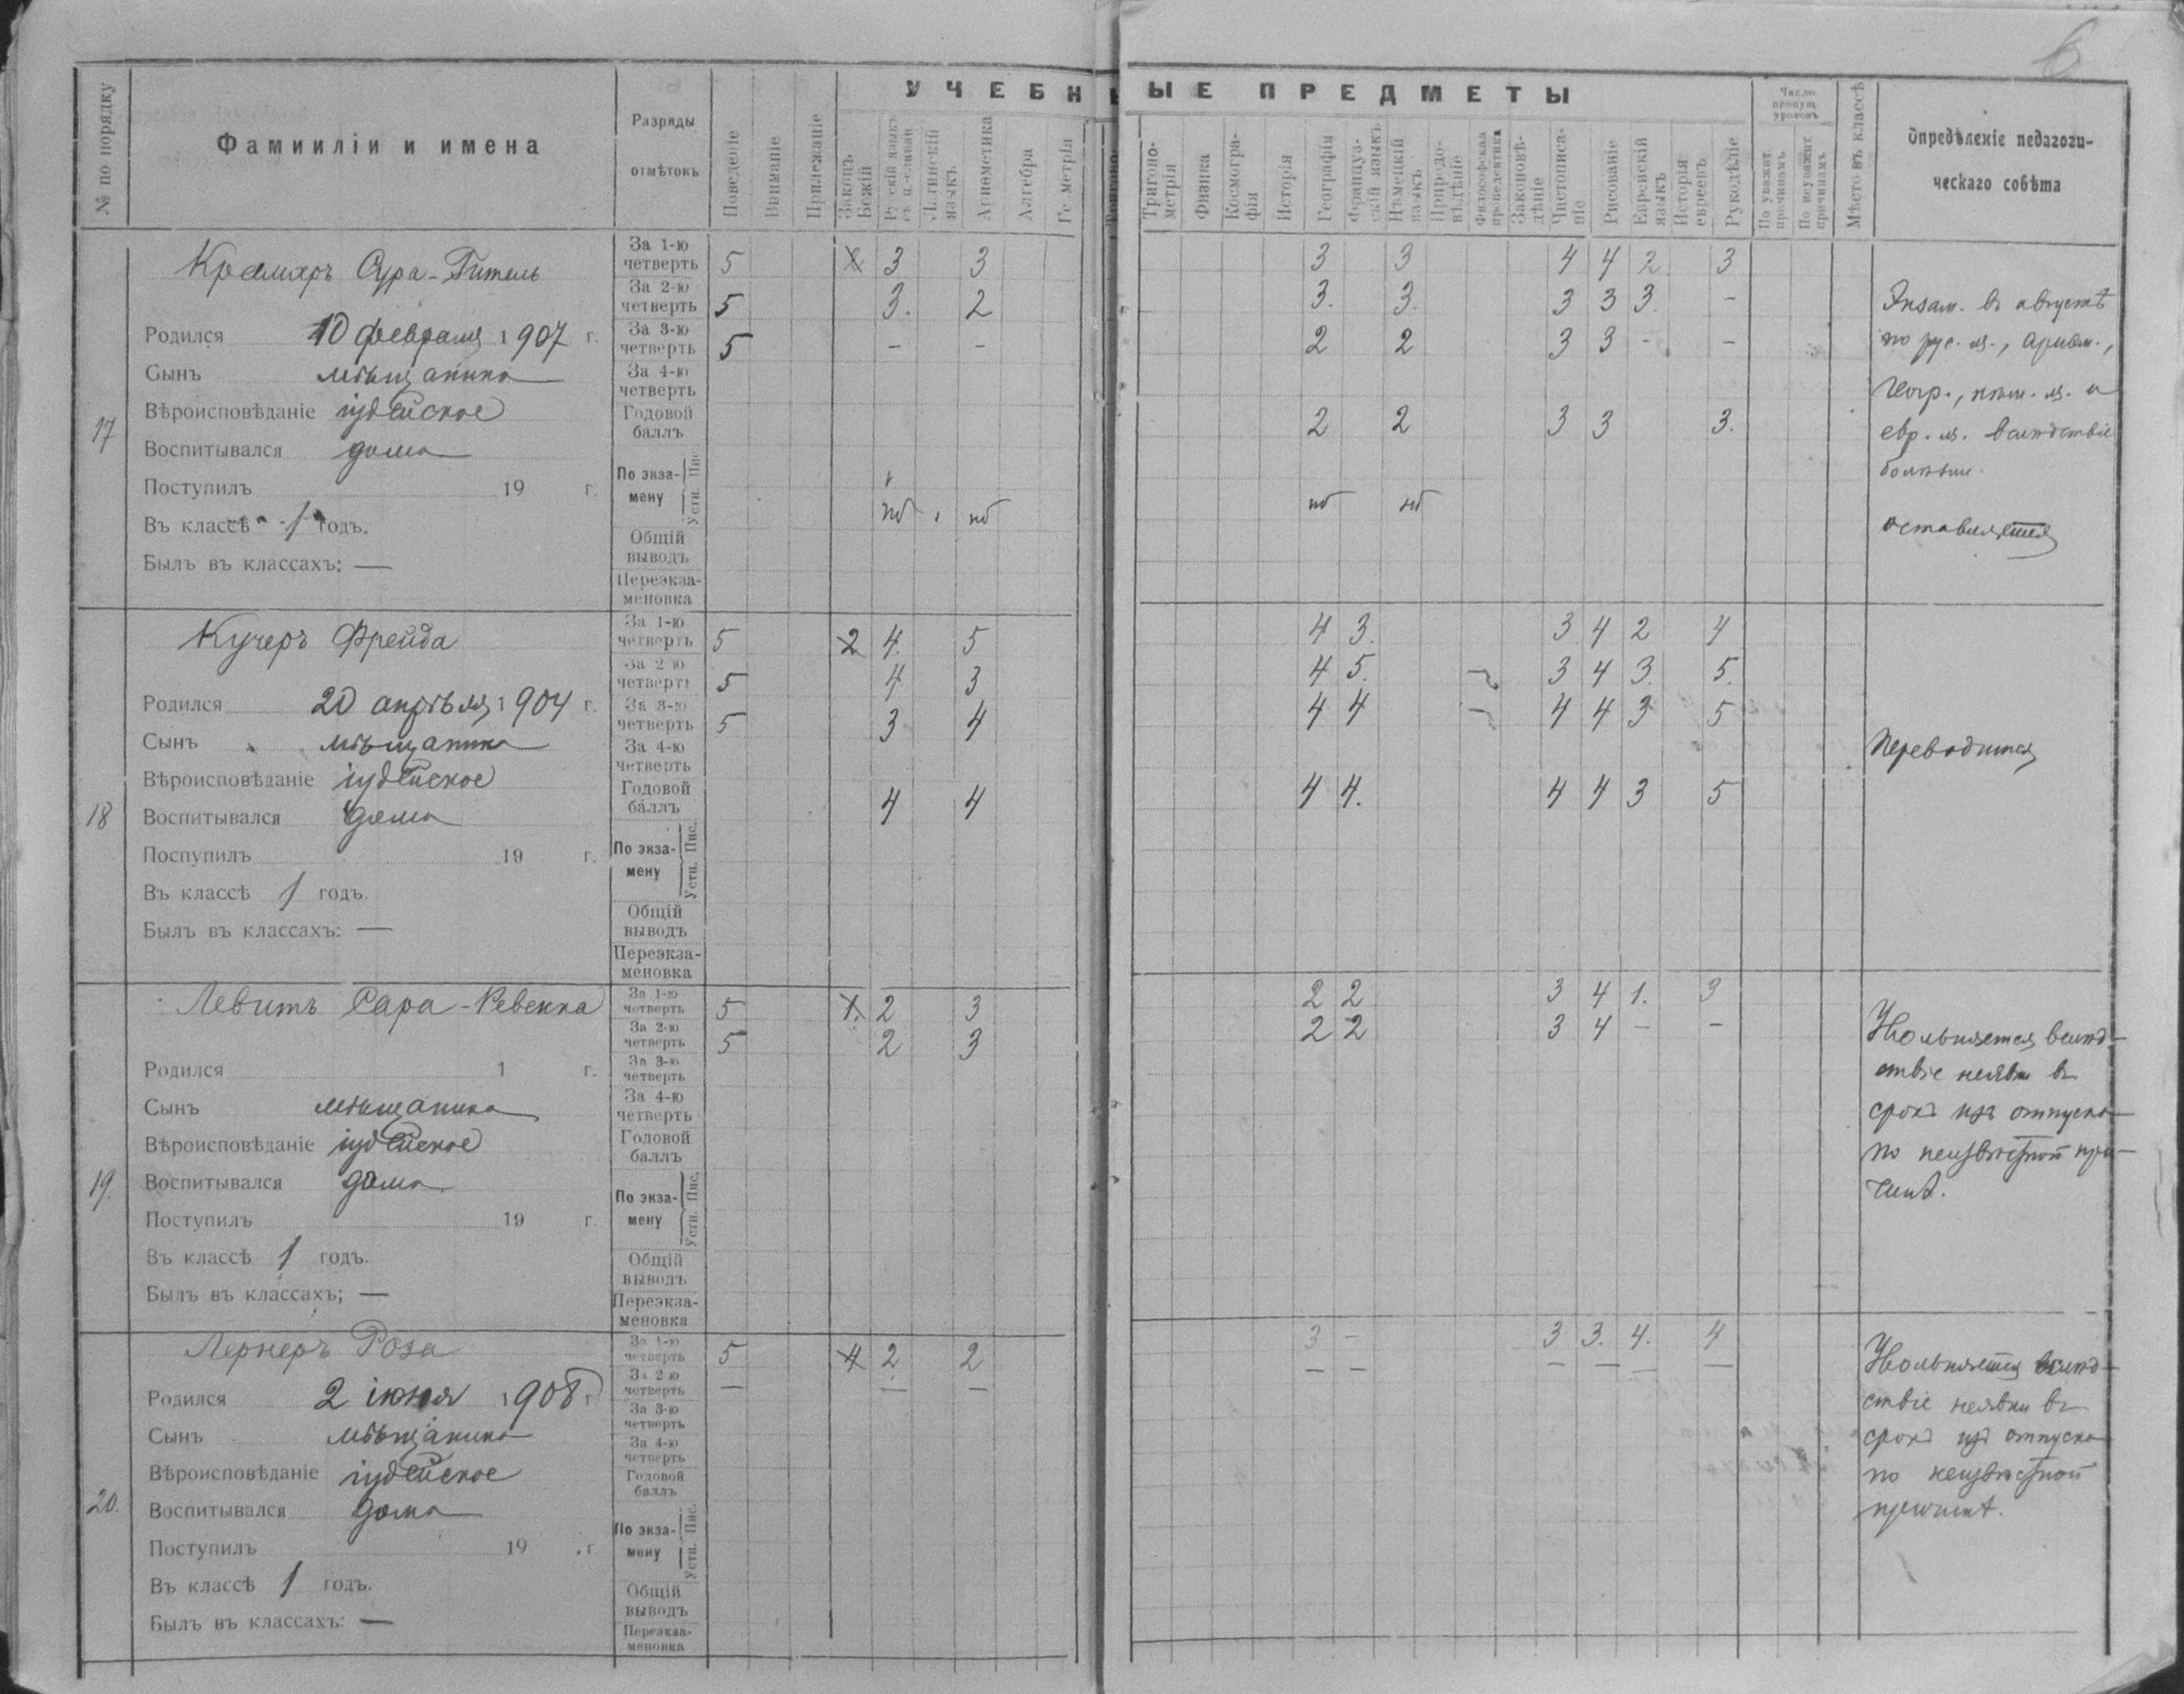 6
УЧЕБНЫЕ ПРЕДМЕТЫ
№ по порядку
Фамииліи и имена
Разряды отмѣтокъ
Поведеніе
Вниманіе
Прилежаніе
Законъ Божій
Русскій языкъ
Латинскій языкъ
Ариѳметика
Алгебра
Геометрія
Тригоно-метрія
Физика
Космогра-фія
Исторія
Географія
Француз-скій языкъ
Нѣмецкій языкъ
Природо-вѣдѣніе
Философская пропедевтика
Законовѣ-дѣніе
Чистописа-ніе
Рисованіе
Еврейскій языкъ
Исторія евреевъ
Рукодѣліе
Число пропущ. уроковъ
По уважит. причинамъ
По неуважит. причинамъ
Мѣсто въ классѣ
Опредѣленіе педагоги-
ческаго совѣта
17
Крамаръ Сура-Гитель
Родился 10 февраля 1907 г.
Сынъ мѣщанина
Вѣроисповѣданіе іудейское
Воспитывался дома
Поступилъ 19 г.
Въ классѣ 1 годъ.
Былъ въ классахъ: —
За 1-ю четверть 5 3 3 3 3 4 4 2 3
За 2-ю четверть 5 3. 2 3. 3. 3 3 3. -
За 3-ю четверть 5 - - 2 2 3 3 - -
За 4-ю четверть
Годовой баллъ 2 2 3 3 3.
По экза-мену Пис. Устн. нб нб нб нб
Общій выводъ
Переэкза-меновка
Экзам. въ августѣ
по рус. яз., ариѳм.,
геогр., нѣм. яз. и
евр. яз. вслѣдствіе
болѣзни.
оставляется
18
Кучеръ Фрейда
Родился 20 апрѣля 1904 г.
Сынъ мѣщанина
Вѣроисповѣданіе іудейское
Воспитывался дома
Поспупилъ 19 г.
Въ классѣ 1 годъ.
Былъ въ классахъ: —
За 1-ю четверть 5 2 4. 5 4 3. 3 4 2 4
За 2-ю четверть 5 4 3 4 5. 3 4 3. 5.
За 3-ю четверть 5 3 4 4 4 4 4 3 5
За 4-ю четверть
Годовой баллъ 4 4 4 4. 4 4 3 5
По экза-мену Пис. Устн.
Общій выводъ
Переэкза-меновка
Переводится
19.
Левитъ Сара-Ревекка
Родился 1 г.
Сынъ мѣщанина
Вѣроисповѣданіе іудейское
Воспитывался дома
Поступилъ 19 г.
Въ классѣ 1 годъ.
Былъ въ классахъ; —
За 1-ю четверть 5 1. 2 3 2 2 3 4 1. 3
За 2-ю четверть 5 2 3 2 2 3 4 - -
За 3-ю четверть
За 4-ю четверть
Годовой баллъ
По экза-мену Пис. Устн.
Общій выводъ
Переэкза-меновка
Увольняется вслѣд-
ствіе неявки въ
срокъ изъ отпуска
по неизвѣстной при-
чинѣ.
20.
Лернеръ Роза
Родился 2 іюня 1908 г
Сынъ мѣщанина
Вѣроисповѣданіе іудейское
Воспитывался дома
Поступилъ 19 г
Въ классѣ 1 годъ.
Былъ въ классахъ: —
За 1-ю четверть 5 4 2 2 3 - 3 3. 4. 4
За 2-ю четверть — — — — — — — — —
За 3-ю четверть
За 4-ю четверть
Годовой баллъ
По экза-мену Пис. Устн.
Общій выводъ
Переэкза-меновка
Увольняется вслѣд-
ствіе неявки въ
срокъ изъ отпуска
по неизвѣстной
причинѣ.